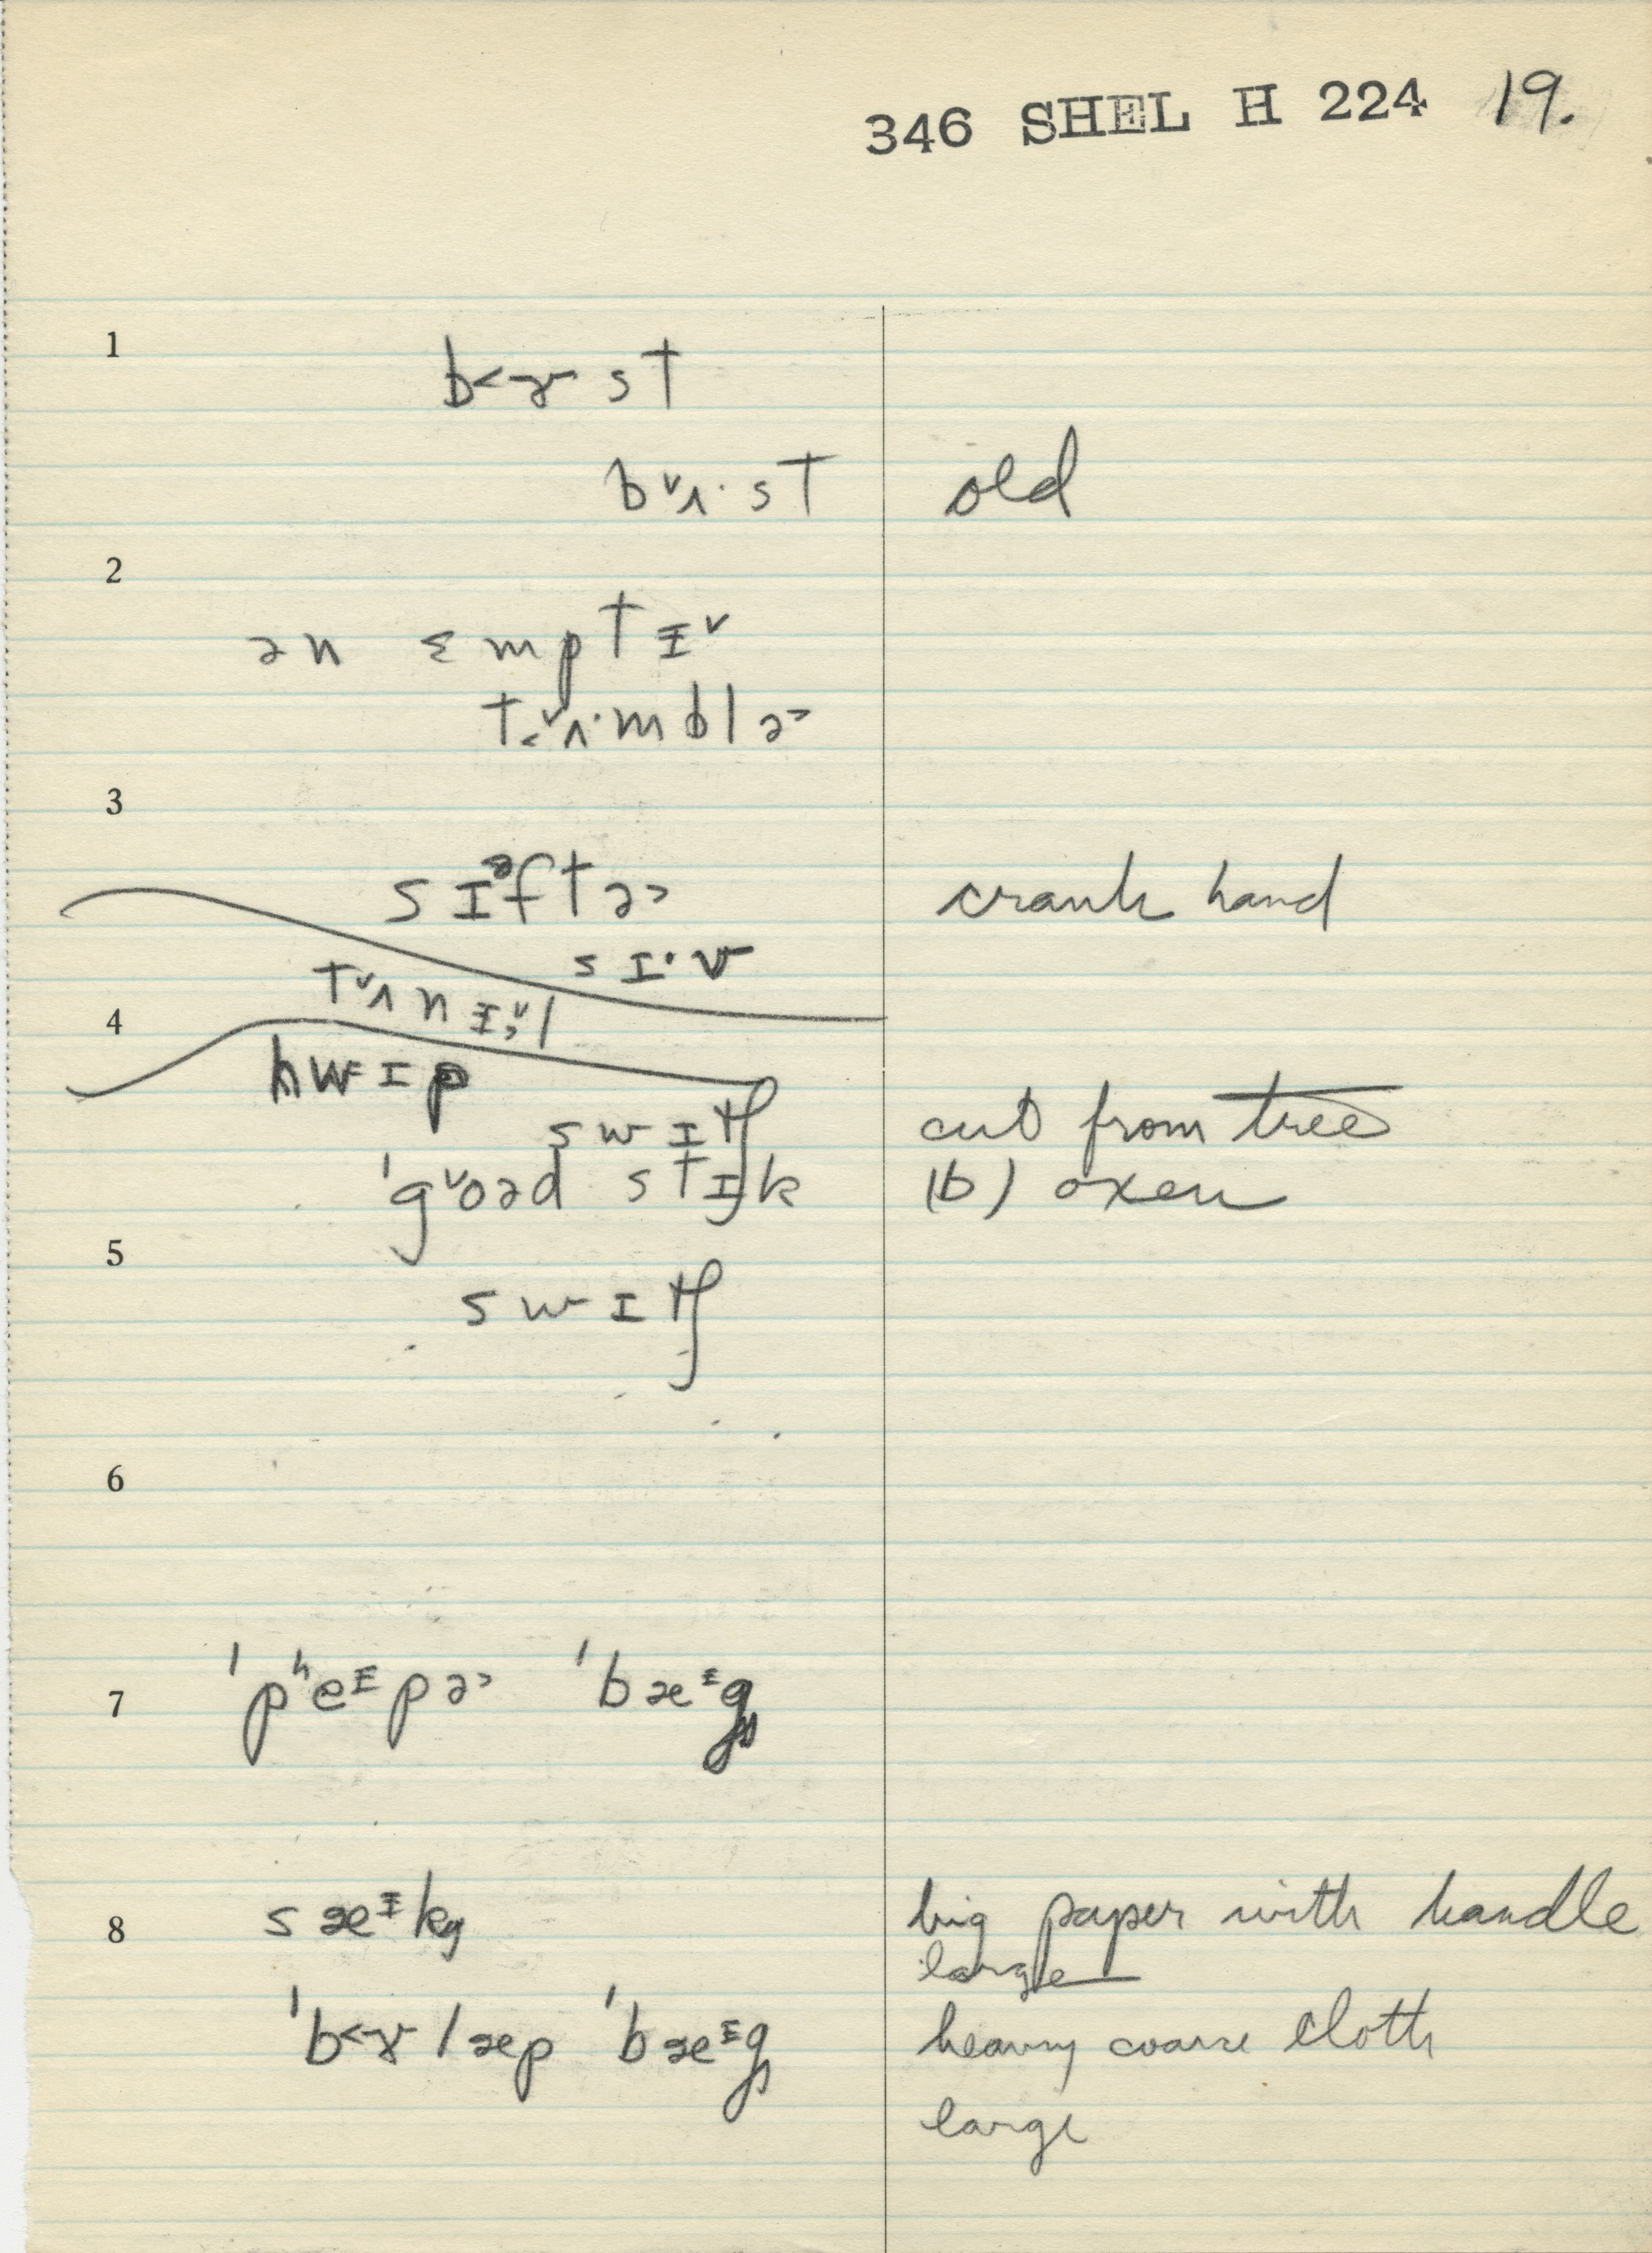 346 SHEL H 224 19.
1
b˂ɤ st
bᵛʌ·st old
2
ən ɛmptɪ̵ᵛ
t̬ᵛʌ·mbləʾ
3
sɪᵊftəʾ crank hand
sɪ·v
tᵛʌnɪ̵ᵛl
4
hwɪp
swɪtʃ cut from tree
ˈgᵛoəd stɪk (b) oxen
5
swɪtʃ
6
7 ˈpʰeᶦpəʾ ˈbæᶦg
8 sæᶦk big paper with handle
large
ˈb˂ɤlæp ˈbæᶦg heavy coarse cloth
large